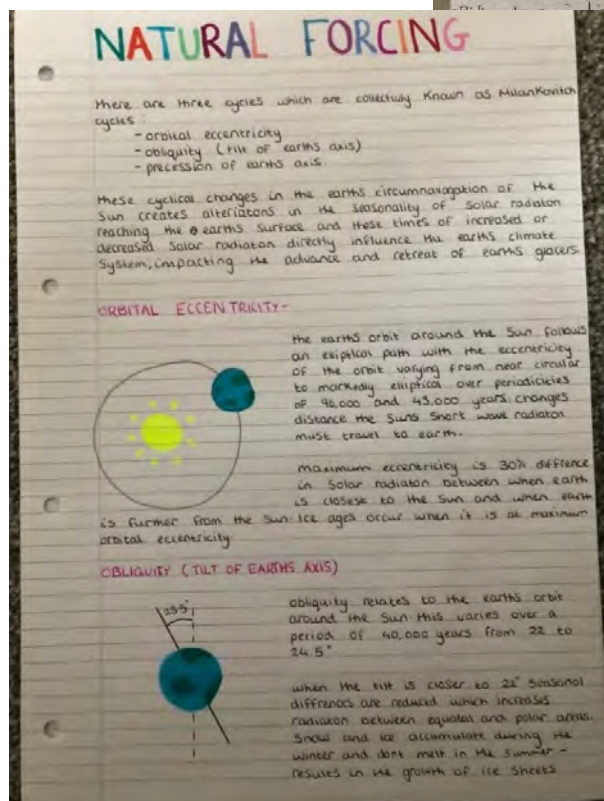 NATURAL FORCING
there are three cycles which are collectivly known as Milankovitch
cycles:
- orbital eccentricity
- obliquity (tilt of earths axis)
- precession of earths axis.
these cyclical changes in the earths circumnavagation of the
Sun creates alteriatons in the seasonality of solar radiaton
reaching the earths surface and these times of increased or
decreased solar radiaton directly influence the earths climate
system, impacting the advance and retreat of earths glacers.
ORBITAL ECCENTRICITY-
the earths orbit around the sun follows
an eliptical path with the eccentricity
of the orbit varying from near circular
to markedly elliptical over periodicicies
of 96,000 and 43,000 years. changes
distance the suns short wave radiaton
must travel to earth.
maximum eccentricity is 30% diffrence
in solar radiaton between when earth
is closest to the sun and when earth
is further from the sun. Ice ages occur when it is at maximum
orbital eccentricity
OBLIQUITY (TILT OF EARTHS AXIS)
23.5°
obliquity relates to the earths orbit
around the sun. this varies over a
period of 40,000 years from 22 to
24.5°
when the tilt is closer to 22° seasonal
diffrences are reduced which increases
radiaton between equatal and polar areas.
Snow and ice accumulate during the
winter and dont melt in the summer -
results in the growth of ice sheets